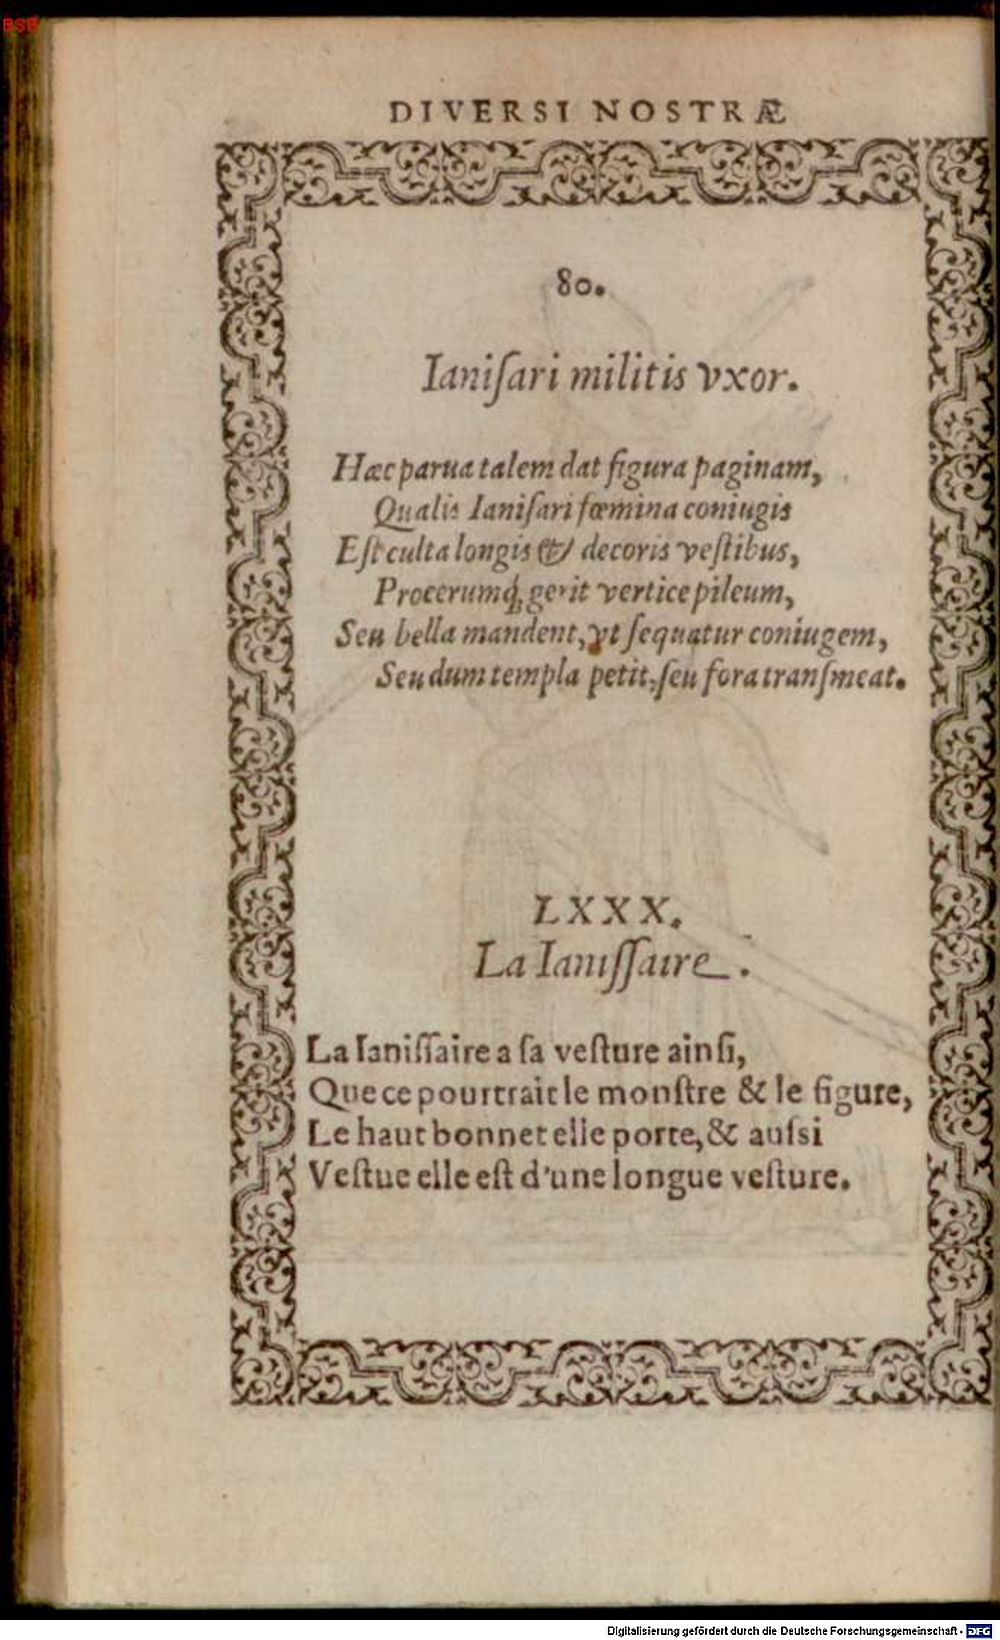 BSB
DIVERSI NOSTRÆ
80.
Ianiſari militis vxor.
Hæc parua talem dat figura paginam,
Qualis Ianiſari fœmina coniugis
Eſt culta longis & decoris veſtibus,
Procerumq́; gerit vertice pileum,
Seu bella mandent, vt ſequatur coniugem,
Seu dum templa petit, ſeu fora tranſmeat.
LXXX.
La Ianiſſaire.
La Ianiſſaire a ſa veſture ainſi,
Que ce pourtrait le monſtre & le figure,
Le haut bonnet elle porte, & auſsi
Veſtue elle eſt d'une longue veſture.
Digitalisierung gefördert durch die Deutsche Forschungsgemeinschaft - DFG